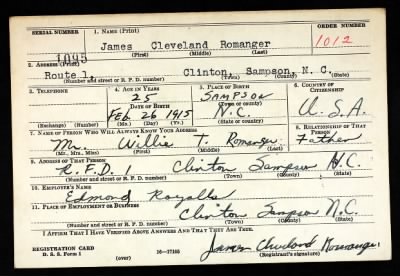 SERIAL NUMBER 1. NAME (Print) ORDER NUMBER
1095 James Cleveland Romanger 1012
(First) (Middle) (Last)
2. ADDRESS (Print)
Route 1, Clinton, Sampson, N. C.
(Number and street or R. F. D. number) (Town) (County) (State)
3. TELEPHONE 4. AGE IN YEARS 5. PLACE OF BIRTH 6. COUNTRY OF CITIZENSHIP
25 SAMPSON
DATE OF BIRTH (Town or county)
FEB 26 1915 N.C. U.S.A.
(Exchange) (Number) (Mo.) (Day) (Yr.) (State or country)
7. NAME OF PERSON WHO WILL ALWAYS KNOW YOUR ADDRESS 8. RELATIONSHIP OF THAT PERSON
Mr. Willie T. Romanger Father
(Mr., Mrs., Miss) (First) (Middle) (Last)
9. ADDRESS OF THAT PERSON
R.F.D. Clinton Sampson N.C.
(Number and street or R. F. D. number) (Town) (County) (State)
10. EMPLOYER'S NAME
Edmond
11. PLACE OF EMPLOYMENT OR BUSINESS
Clinton Sampson N.C.
(Number and street or R. F. D. number) (Town) (County) (State)
I AFFIRM THAT I HAVE VERIFIED ABOVE ANSWERS AND THAT THEY ARE TRUE.
REGISTRATION CARD
D. S. S. Form 1 (over) 16-17105 James Cleveland Romanger
(Registrant's signature)